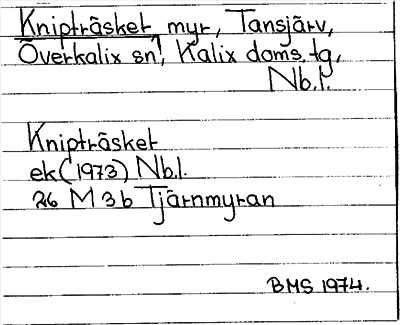 Knipträsket myr, Tansjärv,
Överkalix sn, Kalix doms.tg,
Nb.l.
Knipträsket
ek (1973) Nb.l.
26 M 3 b Tjärnmyran
BMS 1974.